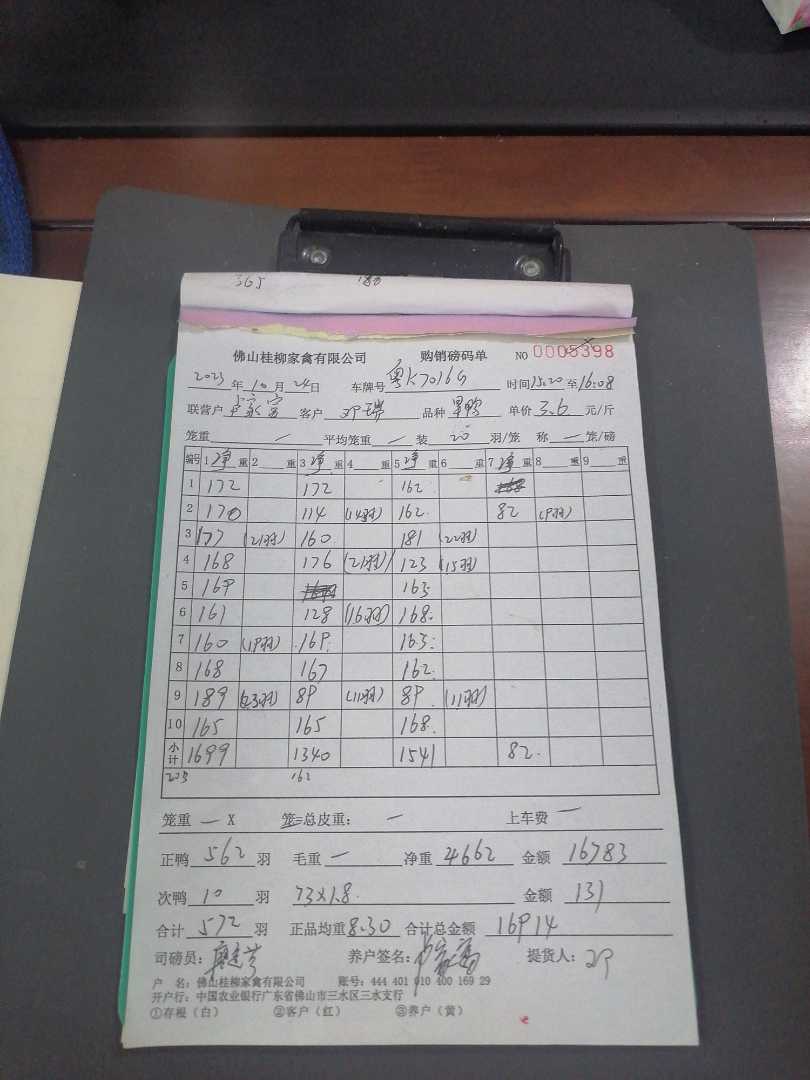 365 180
佛山桂柳家禽有限公司 购销磅码单 NO 0005398
2023年10月24日 车牌号 粤K7016G 时间15:20至16:08
联营户 卢家富 客户 邓瑞 品种 单价3.6元/斤
笼重 — 平均笼重 — 装 20 羽/笼 称 — 笼/磅
编号 1 净 重 2 重 3 净 重 4 重 5 净 重 6 重 7 净 重 8 重 9 重
1 172 172 162
2 170 114 (14羽) 162. 82 (9羽)
3 177 (21羽) 160 181 (22羽)
4 168 176 (21羽) 123 (15羽)
5 169 163
6 161 128 (16羽) 168.
7 160 (19羽) 169. 163.
8 168 167 162.
9 189 (23羽) 89 (11羽) 89. (11羽)
10 165 165 168.
小计 1699 1340 1541 82.
203 162
笼重 — X 笼=总皮重： — 上车费 —
正鸭 562 羽 毛重 — 净重 4662 金额 16783
次鸭 10 羽 73×1.8. 金额 131
合计 572 羽 正品均重 8.30 合计总金额 16914
司磅员： 养户签名：卢家富 提货人：邓
户 名：佛山桂柳家禽有限公司 账号：444 401 010 400 169 29
开户行：中国农业银行广东省佛山市三水区三水支行
①存根（白） ②客户（红） ③养户（黄）